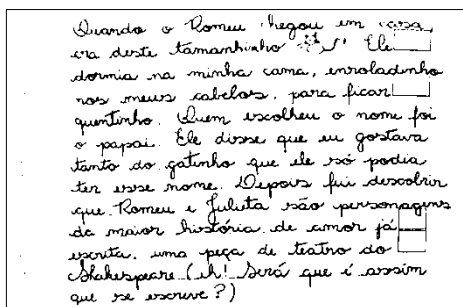 Quando o Romeu chegou em casa
era deste tamanhinho Ele
dormia na minha cama, enroladinho
nos meus cabelos, para ficar
quentinho. Quem escolheu o nome foi
o papai. Ele disse que eu gostava
tanto do gatinho que ele só podia
ter esse nome. Depois fui descobrir
que Romeu e Julieta são personagens
da maior história de amor já
escrita, uma peça de teatro do
Shakespeare (ih! Será que é assim
que se escreve?)